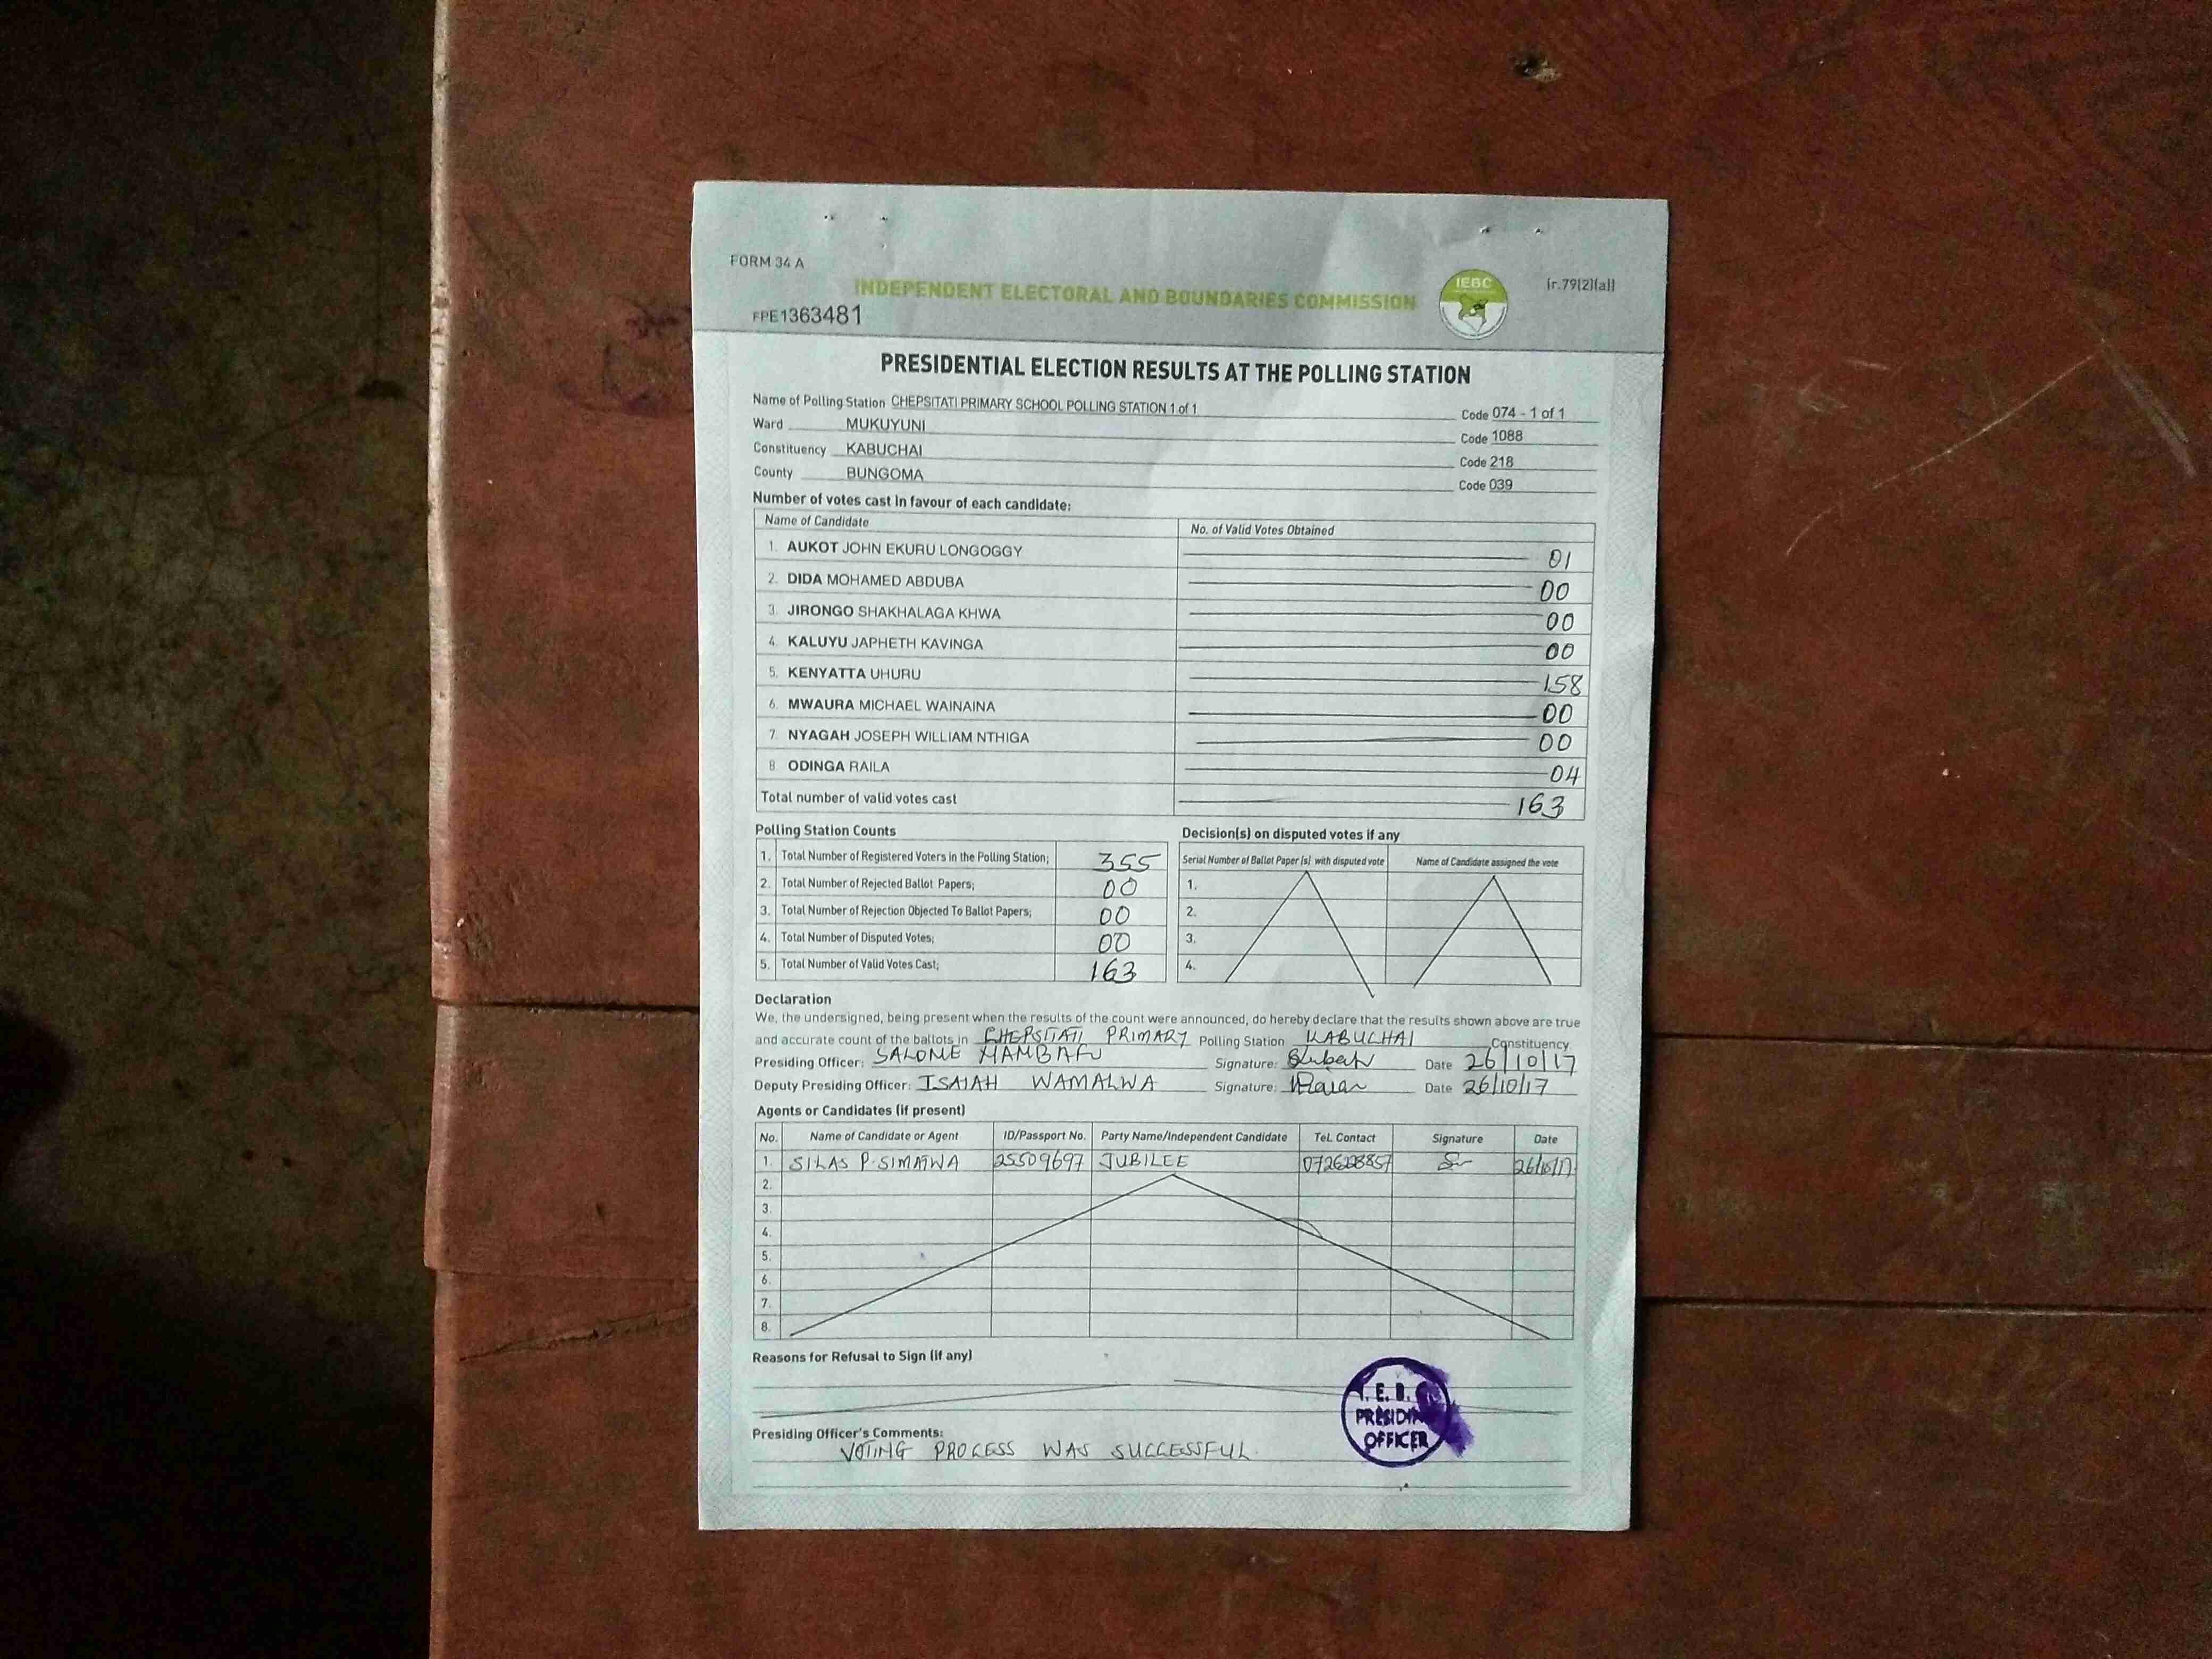 FORM 34 A
INDEPENDENT ELECTORAL AND BOUNDARIES COMMISSION
IEBC
(r.79(2)(a))
FPE1363481
PRESIDENTIAL ELECTION RESULTS AT THE POLLING STATION
Name of Polling Station CHEPSITATI PRIMARY SCHOOL POLLING STATION 1 of 1 Code 074 - 1 of 1
Ward MUKUYUNI Code 1088
Constituency KABUCHAI Code 218
County BUNGOMA Code 039
Number of votes cast in favour of each candidate:
Name of Candidate No. of Valid Votes Obtained
1. AUKOT JOHN EKURU LONGOGGY 01
2. DIDA MOHAMED ABDUBA 00
3. JIRONGO SHAKHALAGA KHWA 00
4. KALUYU JAPHETH KAVINGA 00
5. KENYATTA UHURU 158
6. MWAURA MICHAEL WAINAINA 00
7. NYAGAH JOSEPH WILLIAM NTHIGA 00
8. ODINGA RAILA 04
Total number of valid votes cast 163
Polling Station Counts
1. Total Number of Registered Voters in the Polling Station; 355
2. Total Number of Rejected Ballot Papers; 00
3. Total Number of Rejection Objected To Ballot Papers; 00
4. Total Number of Disputed Votes; 00
5. Total Number of Valid Votes Cast; 163
Decision(s) on disputed votes if any
Serial Number of Ballot Paper (s) with disputed vote Name of Candidate assigned the vote
1.
2.
3.
4.
Declaration
We, the undersigned, being present when the results of the count were announced, do hereby declare that the results shown above are true
and accurate count of the ballots in CHEPSITATI PRIMARY Polling Station KABUCHAI Constituency.
Presiding Officer: SALOME Signature: Date 26/10/17
Deputy Presiding Officer: ISAIAH WAMALWA Signature: Date 26/10/17
Agents or Candidates (if present)
No. Name of Candidate or Agent ID/Passport No. Party Name/Independent Candidate Tel. Contact Signature Date
1. SILAS P. SIMATWA 25509697 JUBILEE 26/10/17
2.
3.
4.
5.
6.
7.
8.
Reasons for Refusal to Sign (if any)
Presiding Officer's Comments:
VOTING PROCESS WAS SUCCESSFUL.
OFFICER